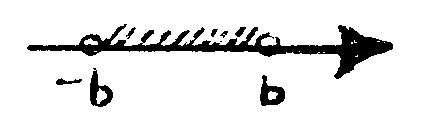 -b b